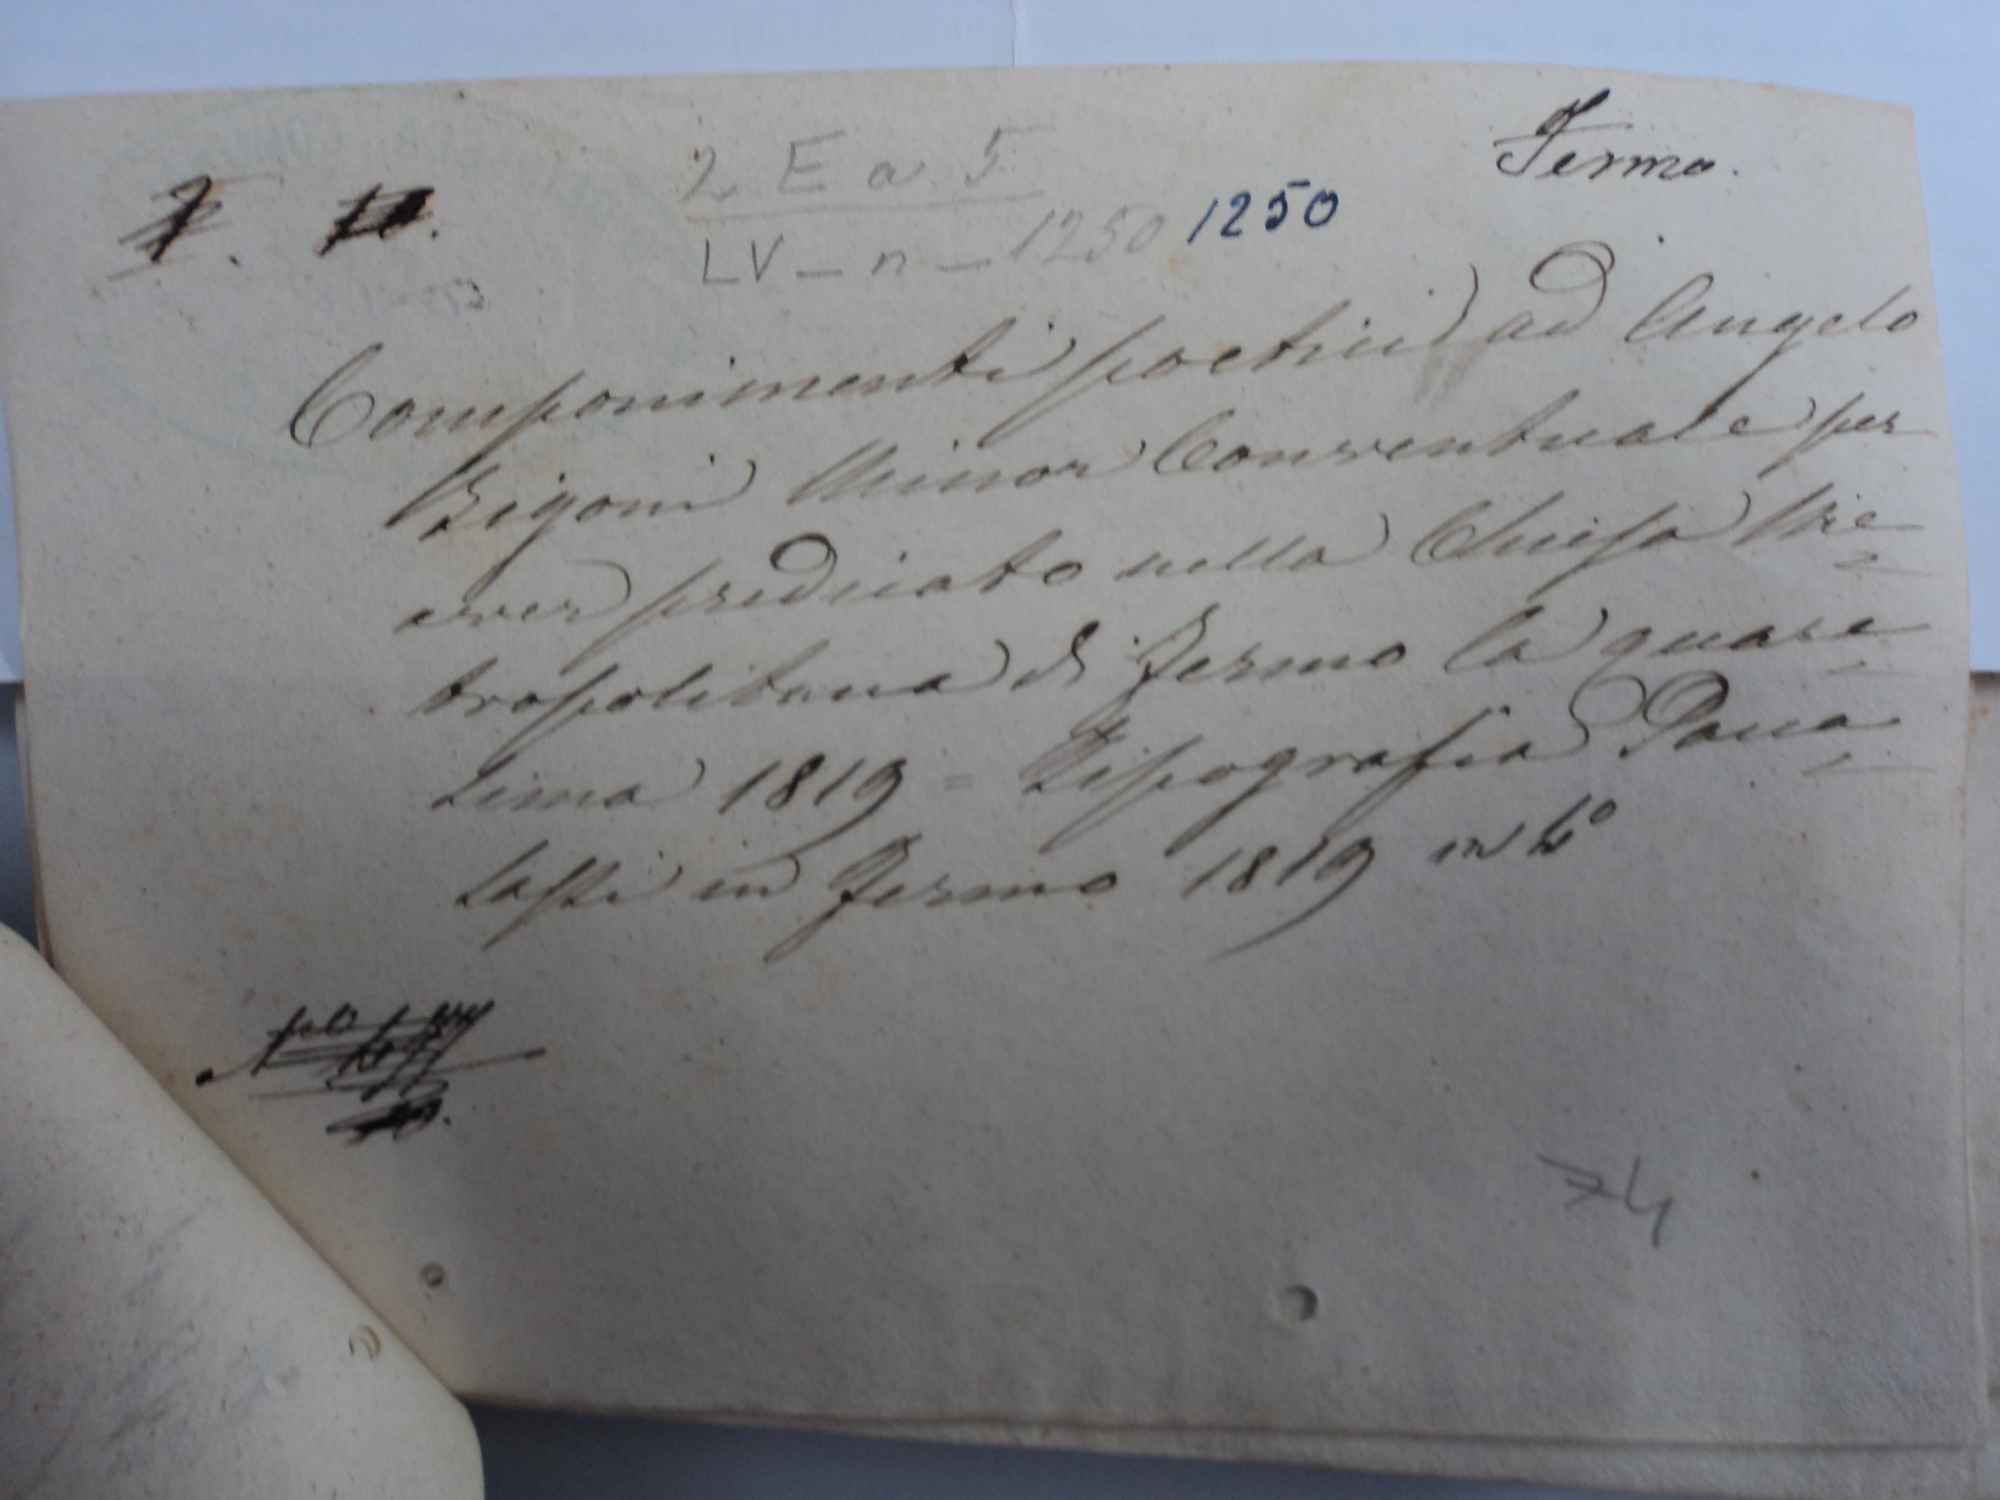 Fermo.
2 E a 5
LV - n - 1250 1250
Componimenti poetici ad Angelo
Bigoni Minor Conventuale per
aver predicato nella Chiesa Me=
tropolitana di Fermo la quare=
sima 1819 = Tipografia Pacca=
sassi in Fermo 1819 in 4°
74